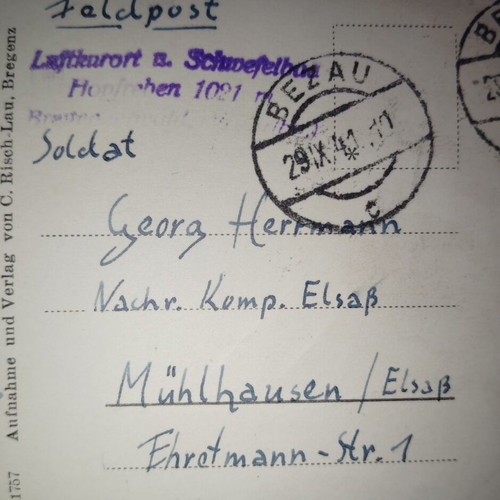 Feldpost
Luftkurort u. Schwefelbad
Hopfreben 1021 m
BEZAU
29.IX.41.11
c
Soldat
Georg Herrmann
Nachr. Komp. Elsaß
Mühlhausen / Elsaß
Ehretmann-Str. 1
Aufnahme und Verlag von C. Risch-Lau, Bregenz
1757